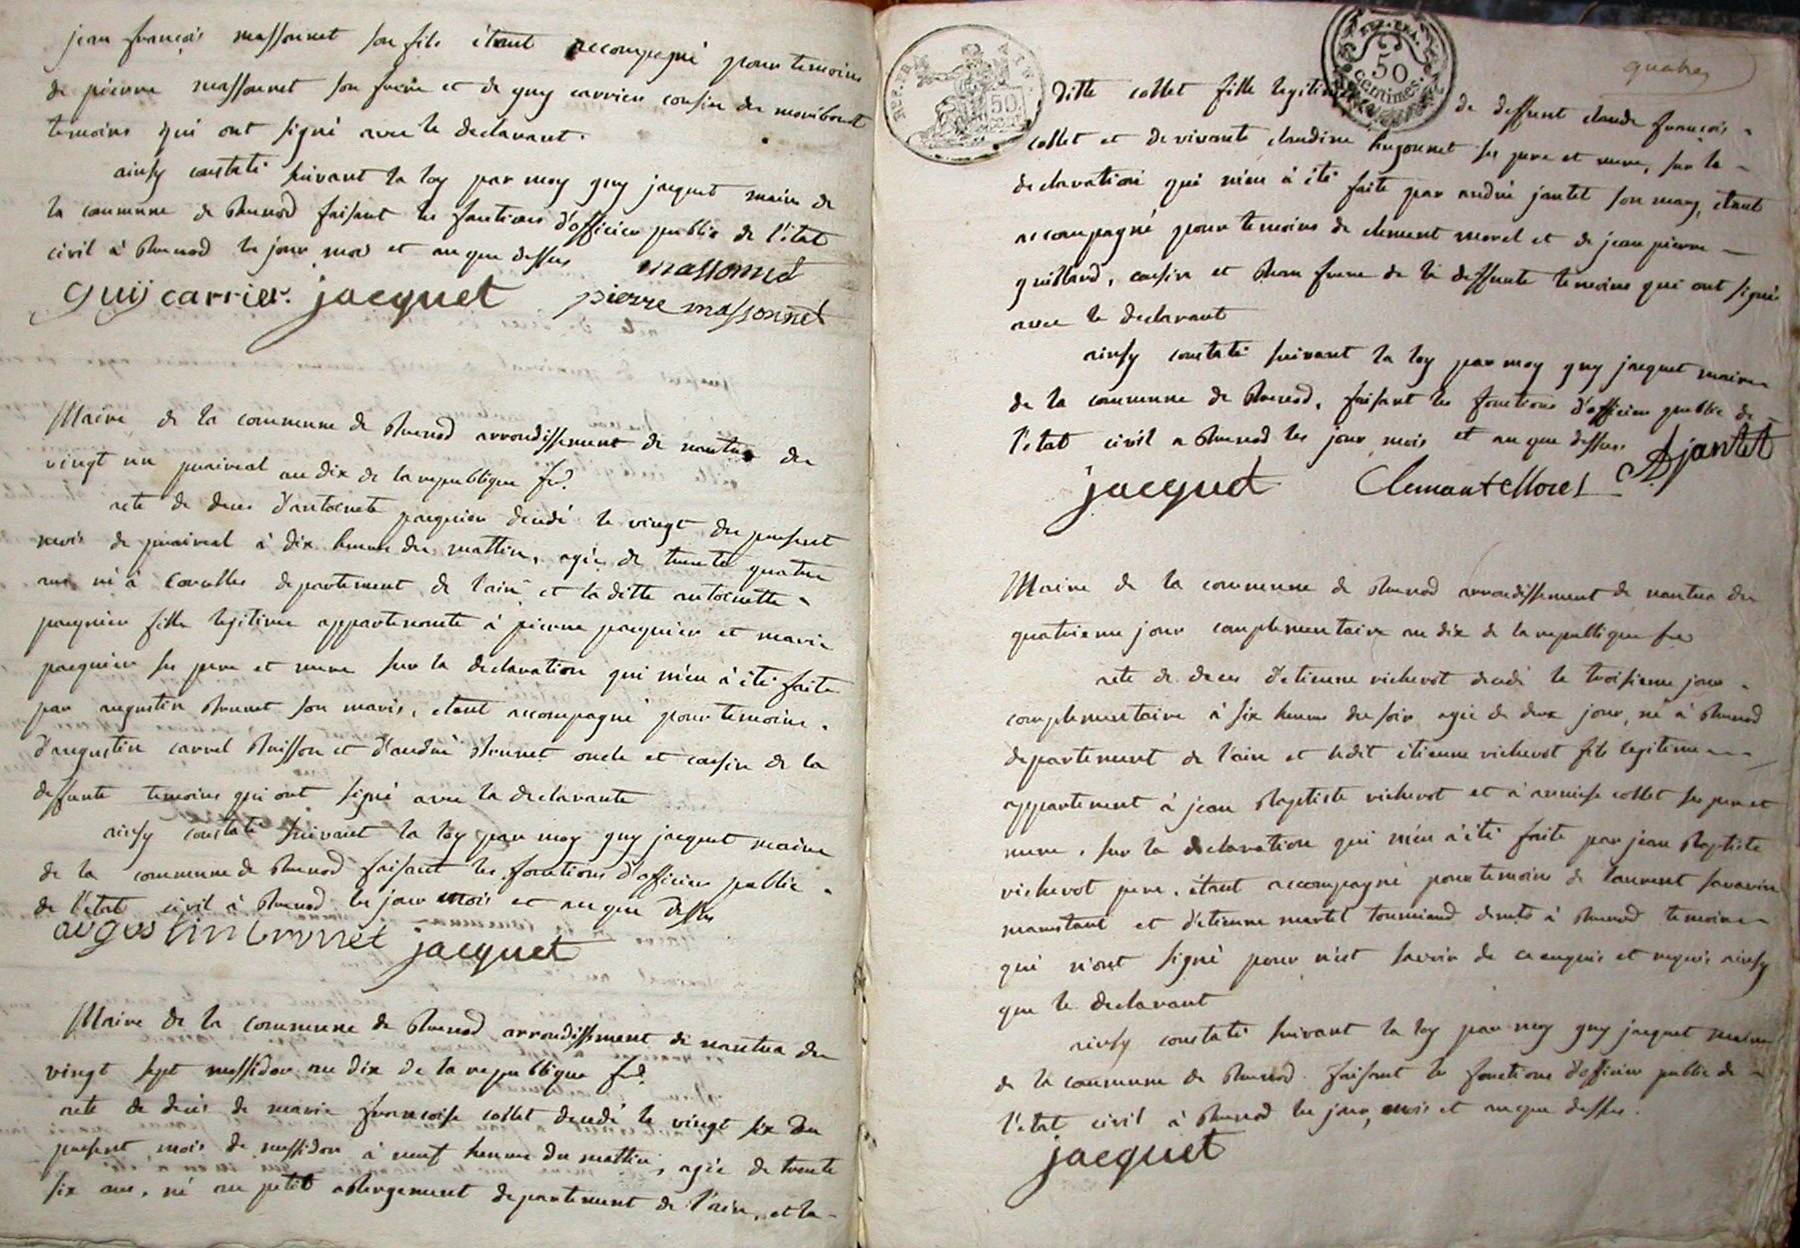 jean françois massonnet son fils étant accompagné pour temoins
de pierre massonnet son frere et de guy carrier cousin du moribout
temoins qui ont signé avec le declarant.
ainsy constaté suivant la loy par moy guy jacquet maire de
la commune de Brenod faisant les fonctions d'officier public de l'état
civil à Brenod les jour mois et an que dessus massonnet
guy carrier. jacquet pierre massonnet
Maire de la commune de Brenod arrondissement de nantua du
vingt un prairial an dix de la republique fse
acte de deces d'antoinete pasquier decedé le vingt du present
mois de prairial à dix heures du mattin, agée de trente quatre
ans né à departement de l'ain et la ditte antoinette
pasquier fille legitime appartenante à pierre pasquier et marie
pasquier ses pere et mere sur la declaration qui m'en à été faite
par augustin Brunet son maris, etant accompagné pour temoins.
d'augustin carrel Buisson et d'andré Brunet oncle et cousin de la
deffunte temoins qui ont signé avec la declarante
ainsy constaté suivant la loy par moy guy jacquet maire
de la commune de Brenod faisant les fonctions d'officier public.
de l'etat civil à Brenod les jour mois et an que dessus
augustin brunet jacquet
Maire de la commune de Brenod arrondissement de nantua du
vingt sept messidor an dix de la republique fse
acte de décès de marie françoise collet decedé le vingt six du
present mois de messidor à neuf heures du mattin, agée de trente
six ans, né au petit abergement departement de l'ain, et la
REP. FRA. 50 AIN
REP. FRA. 50 centimes
quatre
ditte collet fille legitime de deffunt claude françois
collet et de vivante claudine hugonnet ses pere et mere, sur la
declaration qui m'en à été faite par andré jantet son mary, etant
accompagné pour temoins de clement morel et de jean pierre
guilland, cousin et beau frere de la deffunte temoins qui ont signé
avec le declarant
ainsy constaté suivant la loy par moy guy jacquet maire
de la commune de Brenod, faisant les fonctions d'officier public de
l'etat civil a Brenod les jour mois et an que dessus
jacquet Clemant Morel A jantet
Maire de la commune de Brenod arrondissement de nantua du
quatrieme jour complementaire an dix de la republique fse
acte de deces d'etienne richerot decedé le troisieme jour
complementaire à six heures du soir agée de deux jour, né à Brenod
departement de l'ain et ledit étienne richerot fils legitime
appartenent à jean Baptiste richerot et à collet ses pere et
mere, sur la declaration qui m'en à été faite par jean Baptiste
richerot pere, étant accompagné pour temoins de laurent savarin
et d'etienne martel à Brenod temoins
qui n'ont signé pour n'est savoir de ce enquis et requis ainsy
que le declarant
ainsy constaté suivant la loy par moy guy jacquet maire
de la commune de Brenod faisant les fonctions d'officier public de
l'etat civil à Brenod les jour, mois et an que dessus.
jacquet